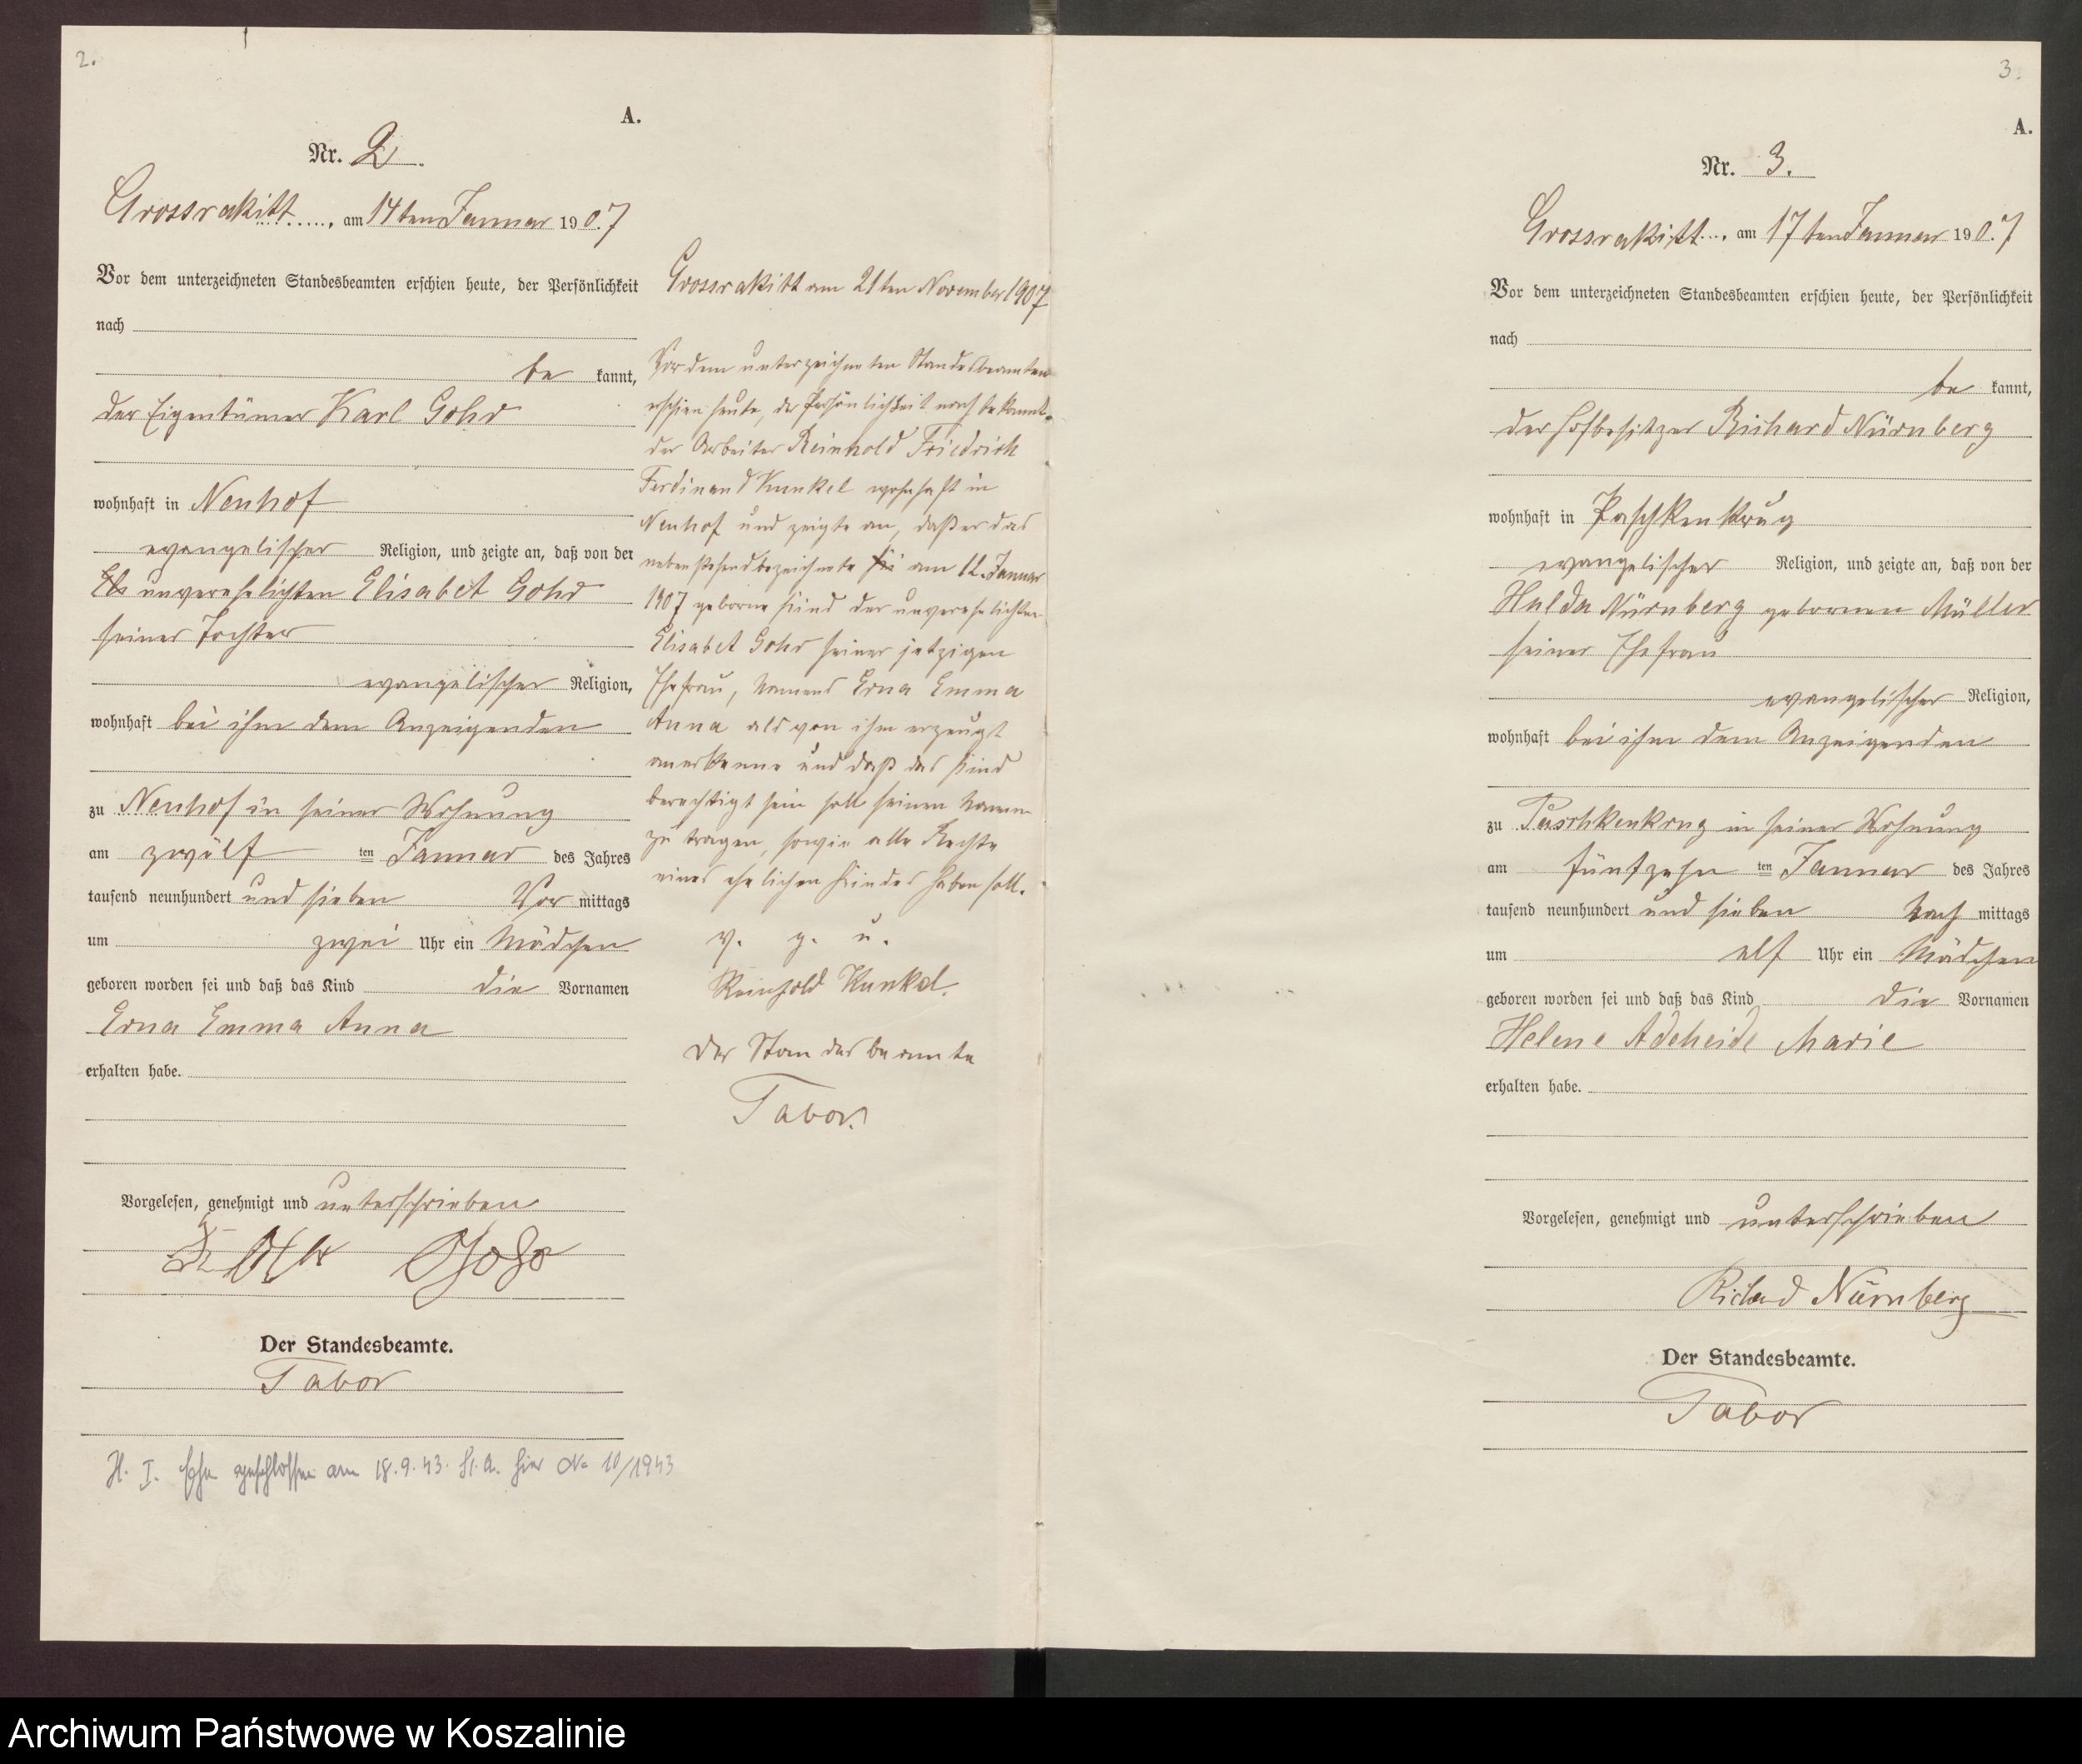 2.
A.
Nr. 2.
Grossrakitt ....., am 14ten Januar 190.7
Vor dem unterzeichneten Standesbeamten erschien heute, der Persönlichkeit
nach
be kannt,
der Eigentümer Karl Gohr
wohnhaft in Neuhof
evangelischer Religion, und zeigte an, daß von der
unverehelichten Elisabet Gohr
seiner Tochter
evangelischer Religion,
wohnhaft bei ihm dem Anzeigenden
zu Neuhof in seiner Wohnung
am zwölf ten Januar des Jahres
tausend neunhundert und sieben Vor mittags
um zwei Uhr ein Mädchen
geboren worden sei und daß das Kind die Vornamen
Erna Emma Anna
erhalten habe.
Vorgelesen, genehmigt und unterschrieben
Gohr
Der Standesbeamte.
Tabor
H. I. Ehe geschlossen am 18.9.43. St. A. hier No 10/1943
Grossrakitt am 21ten November 1907
Vor dem unterzeichneten Standesbeamten
erschien heute, der Persönlichkeit nach bekannt,
der Arbeiter Reinhold Friedrich
Ferdinand Kunkel wohnhaft in
Neuhof und zeigte an, daß er das
nebenstehend bezeichnete am 12. Januar
1907 geborne Kind der unverehelichten
Elisabet Gohr seiner jetzigen
Ehefrau, Namens Erna Emma
Anna als von ihm erzeugt
anerkenne und daß das Kind
berechtigt sein soll seinen Namen
zu tragen, sowie alle Rechte
eines ehelichen Kindes haben soll.
v. g. u.
Reinhold Kunkel.
Der Standesbeamte
Tabor.
3.
A.
Nr. 3.
Grossrakitt ..., am 17ten Januar 190.7
Vor dem unterzeichneten Standesbeamten erschien heute, der Persönlichkeit
nach
be kannt,
der Hofbesitzer Richard Nürnberg
wohnhaft in Paschkenkrug
evangelischer Religion, und zeigte an, daß von der
Hulda Nürnberg gebornen Müller
seiner Ehefrau
evangelischer Religion,
wohnhaft bei ihm dem Anzeigenden
zu Paschkenkrug in seiner Wohnung
am fünfzehn ten Januar des Jahres
tausend neunhundert und sieben Nach mittags
um elf Uhr ein Mädchen
geboren worden sei und daß das Kind die Vornamen
Helene Adeheide Marie
erhalten habe.
Vorgelesen, genehmigt und unterschrieben
Richard Nürnberg
Der Standesbeamte.
Tabor
Archiwum Państwowe w Koszalinie